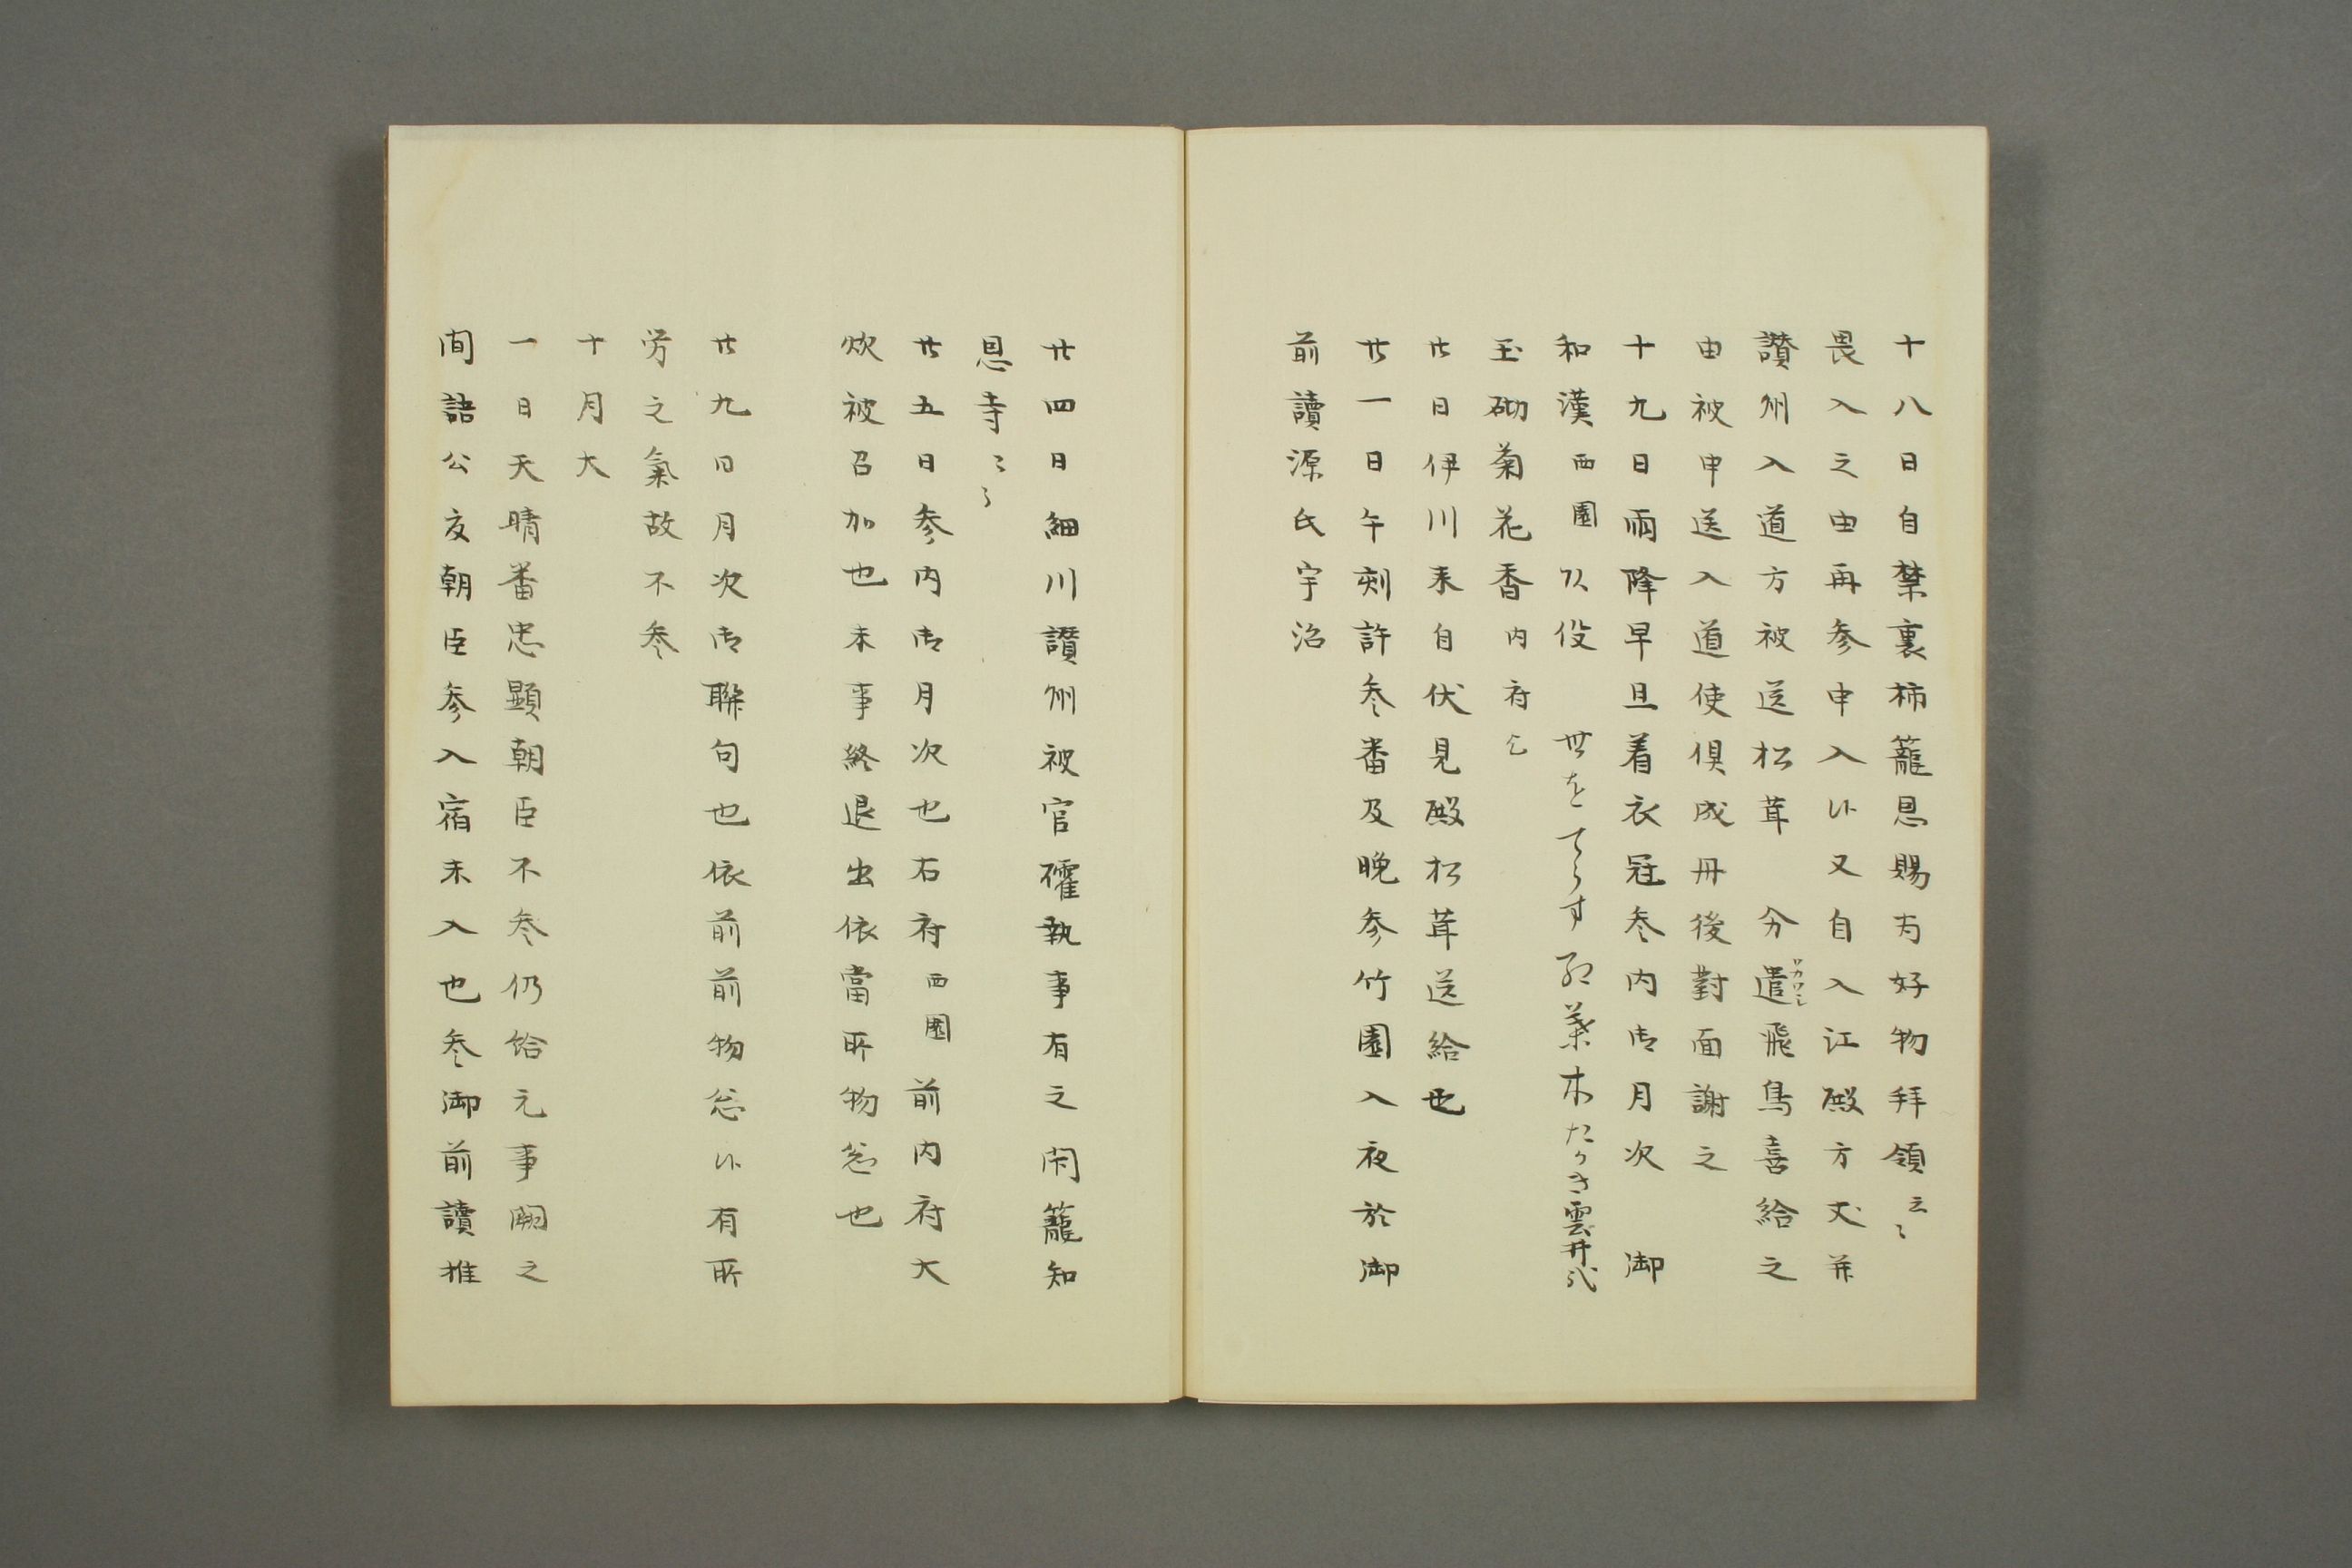 十八日自禁裏柿籠恩賜為好物拜領云〻
畏入之由再参申入以又自入江殿方丈并
讃州入道方被送松茸　分遣飛鳥喜給之
ワカワシ
由被申送入道使倶成丹後對面謝之
十九日雨降早旦着衣冠参内御月次　御
和漢西園以後　世をてらす紅葉木たかき雲井哉
玉砌菊花香内府
廿日伊川来自伏見殿松茸送給也
廿一日午刻許参番及晩参竹園入夜於御
前讀源氏宇治
廿四日細川讃州被官　執事有之　閇籠知
恩寺〻〻
廿五日参内御月次也右府西園前内府大
炊被召加也未事終退出依當所物忩也
廿九日月次御聯句也依前前物忩以有所
労之氣故不参
十月大
一日天晴番忠顕朝臣不参仍給元事闕之
間語公友朝臣参入宿未入也参御前讀推